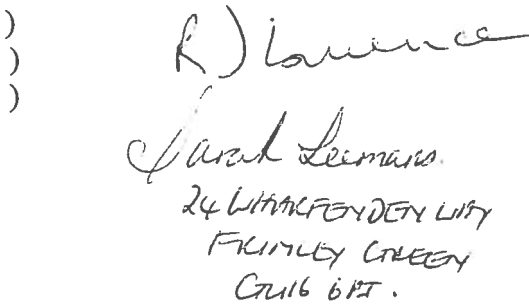 )
)
)
R J Lawrence
Sarah Leemans.
24 WHARFENDEN WAY
FRIMLEY GREEN
GU16 6PJ.